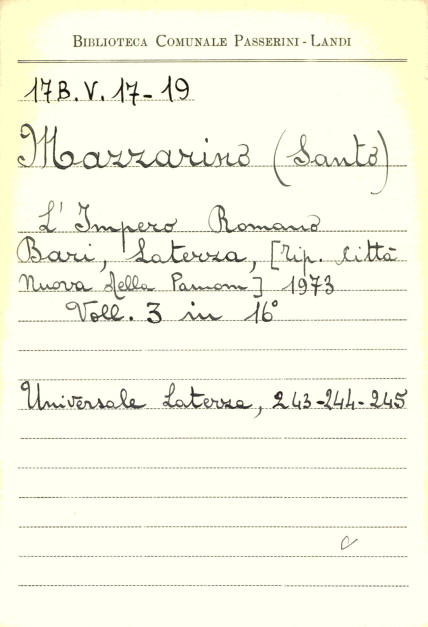 BIBLIOTECA COMUNALE PASSERINI-LANDI
17B.V.17-19
Mazzarino (Santo)
L'Impero Romano
Bari, Laterza, [Tip. Città
Nuova della Pamom] 1973
Voll. 3 in 16°
Universale Laterza, 243-244-245
c